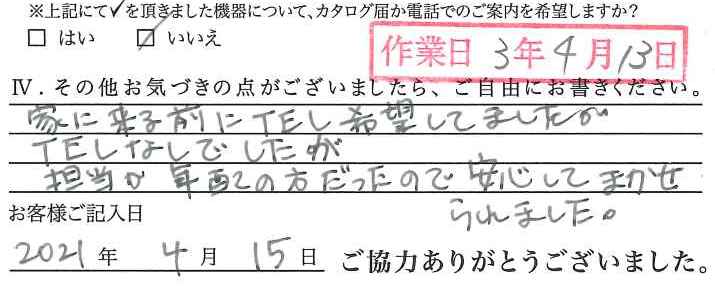 ※上記にて✓を頂きました機器について、カタログ届か電話でのご案内を希望しますか?
□ はい ☑ いいえ
作業日 3年4月13日
Ⅳ．その他お気づきの点がございましたら、ご自由にお書きください。
家に来る前にTEL希望してましたが
TELなしでしたが
担当が年配の方だったので安心してまかせ
られました。
お客様ご記入日
2021年 4月 15日 ご協力ありがとうございました。